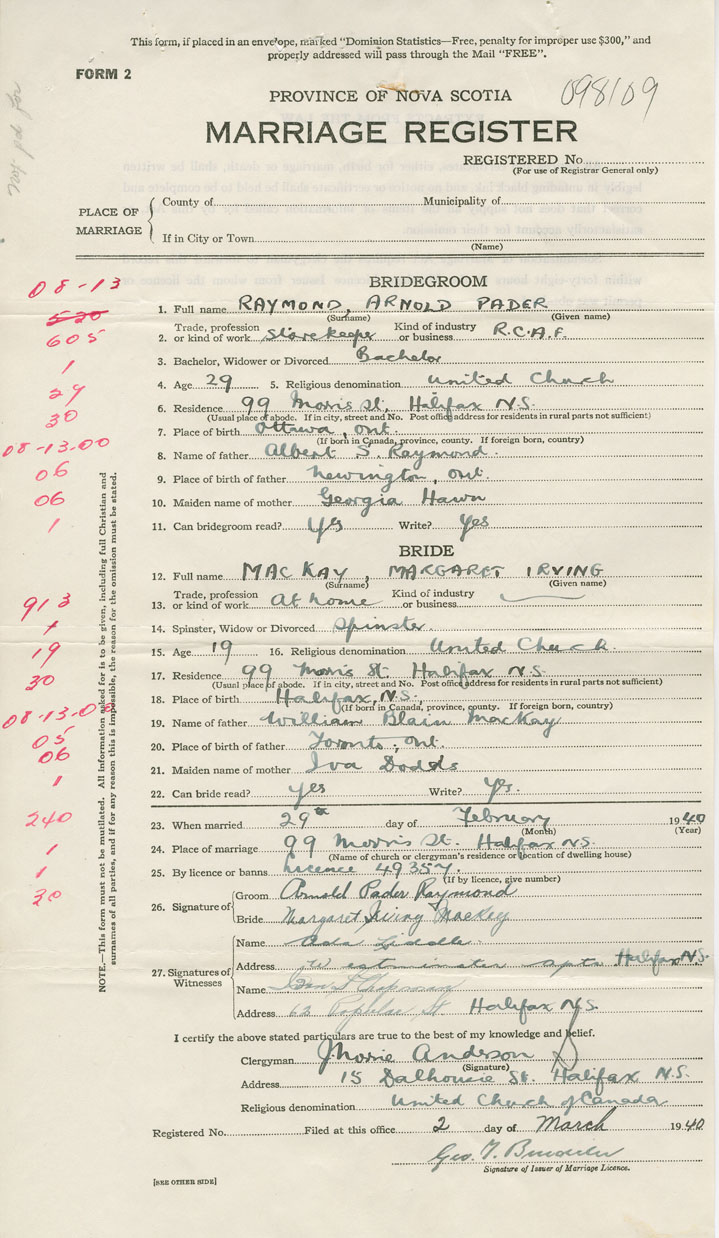 This form, if placed in an envelope, marked "Dominion Statistics—Free, penalty for improper use $300," and
properly addressed will pass through the Mail "FREE".
FORM 2
098109
PROVINCE OF NOVA SCOTIA
MARRIAGE REGISTER
REGISTERED No.
(For use of Registrar General only)
PLACE OF MARRIAGE
County of Municipality of
If in City or Town
(Name)
BRIDEGROOM
08-13
1. Full name RAYMOND, ARNOLD PADER
(Surname) (Given name)
520
605
2. Trade, profession or kind of work Storekeeper Kind of industry or business R.C.A.F.
1
3. Bachelor, Widower or Divorced Bachelor
29
4. Age 29 5. Religious denomination United Church
30
6. Residence 99 Morris St, Halifax N.S.
(Usual place of abode. If in city, street and No. Post office address for residents in rural parts not sufficient)
08-13-00
7. Place of birth Ottawa, Ont.
(If born in Canada, province, county. If foreign born, country)
8. Name of father Albert S. Raymond.
06
9. Place of birth of father Newington, Ont.
06
10. Maiden name of mother Georgia Hawn
1
11. Can bridegroom read? Yes Write? Yes
BRIDE
12. Full name MACKAY, MARGARET IRVING
(Surname) (Given name)
913
13. Trade, profession or kind of work At home Kind of industry or business
14. Spinster, Widow or Divorced Spinster
19
15. Age 19 16. Religious denomination United Church.
30
17. Residence 99 Morris St. Halifax N.S.
(Usual place of abode. If in city, street and No. Post office address for residents in rural parts not sufficient)
08-13-00
18. Place of birth Halifax, N.S.
(If born in Canada, province, county. If foreign born, country)
19. Name of father William Blain MacKay
05
20. Place of birth of father Toronto, Ont.
06
21. Maiden name of mother Iva Dodds
1
22. Can bride read? Yes Write? Yes.
240
23. When married 29th day of February 1940
(Month) (Year)
1
24. Place of marriage 99 Morris St. Halifax N.S.
(Name of church or clergyman's residence or location of dwelling house)
1
25. By licence or banns Licence 49357.
(If by licence, give number)
30
26. Signature of
Groom Arnold Pader Raymond
Bride Margaret Irving MacKay
27. Signatures of Witnesses
Name Ada Liddell
Address Westminster Apts Halifax N.S.
Name Chapman
Address 62 St Halifax N.S.
I certify the above stated particulars are true to the best of my knowledge and belief.
Clergyman J. Morrie Anderson
(Signature)
Address 15 Dalhousie St. Halifax N.S.
Religious denomination United Church of Canada
Registered No. Filed at this office 2 day of March 1940
Geo. T.
Signature of Issuer of Marriage Licence.
[SEE OTHER SIDE]
NOTE.—This form must not be mutilated. All information asked for is to be given, including full Christian and
surnames of all parties, and if for any reason this is impossible, the reason for the omission must be stated.